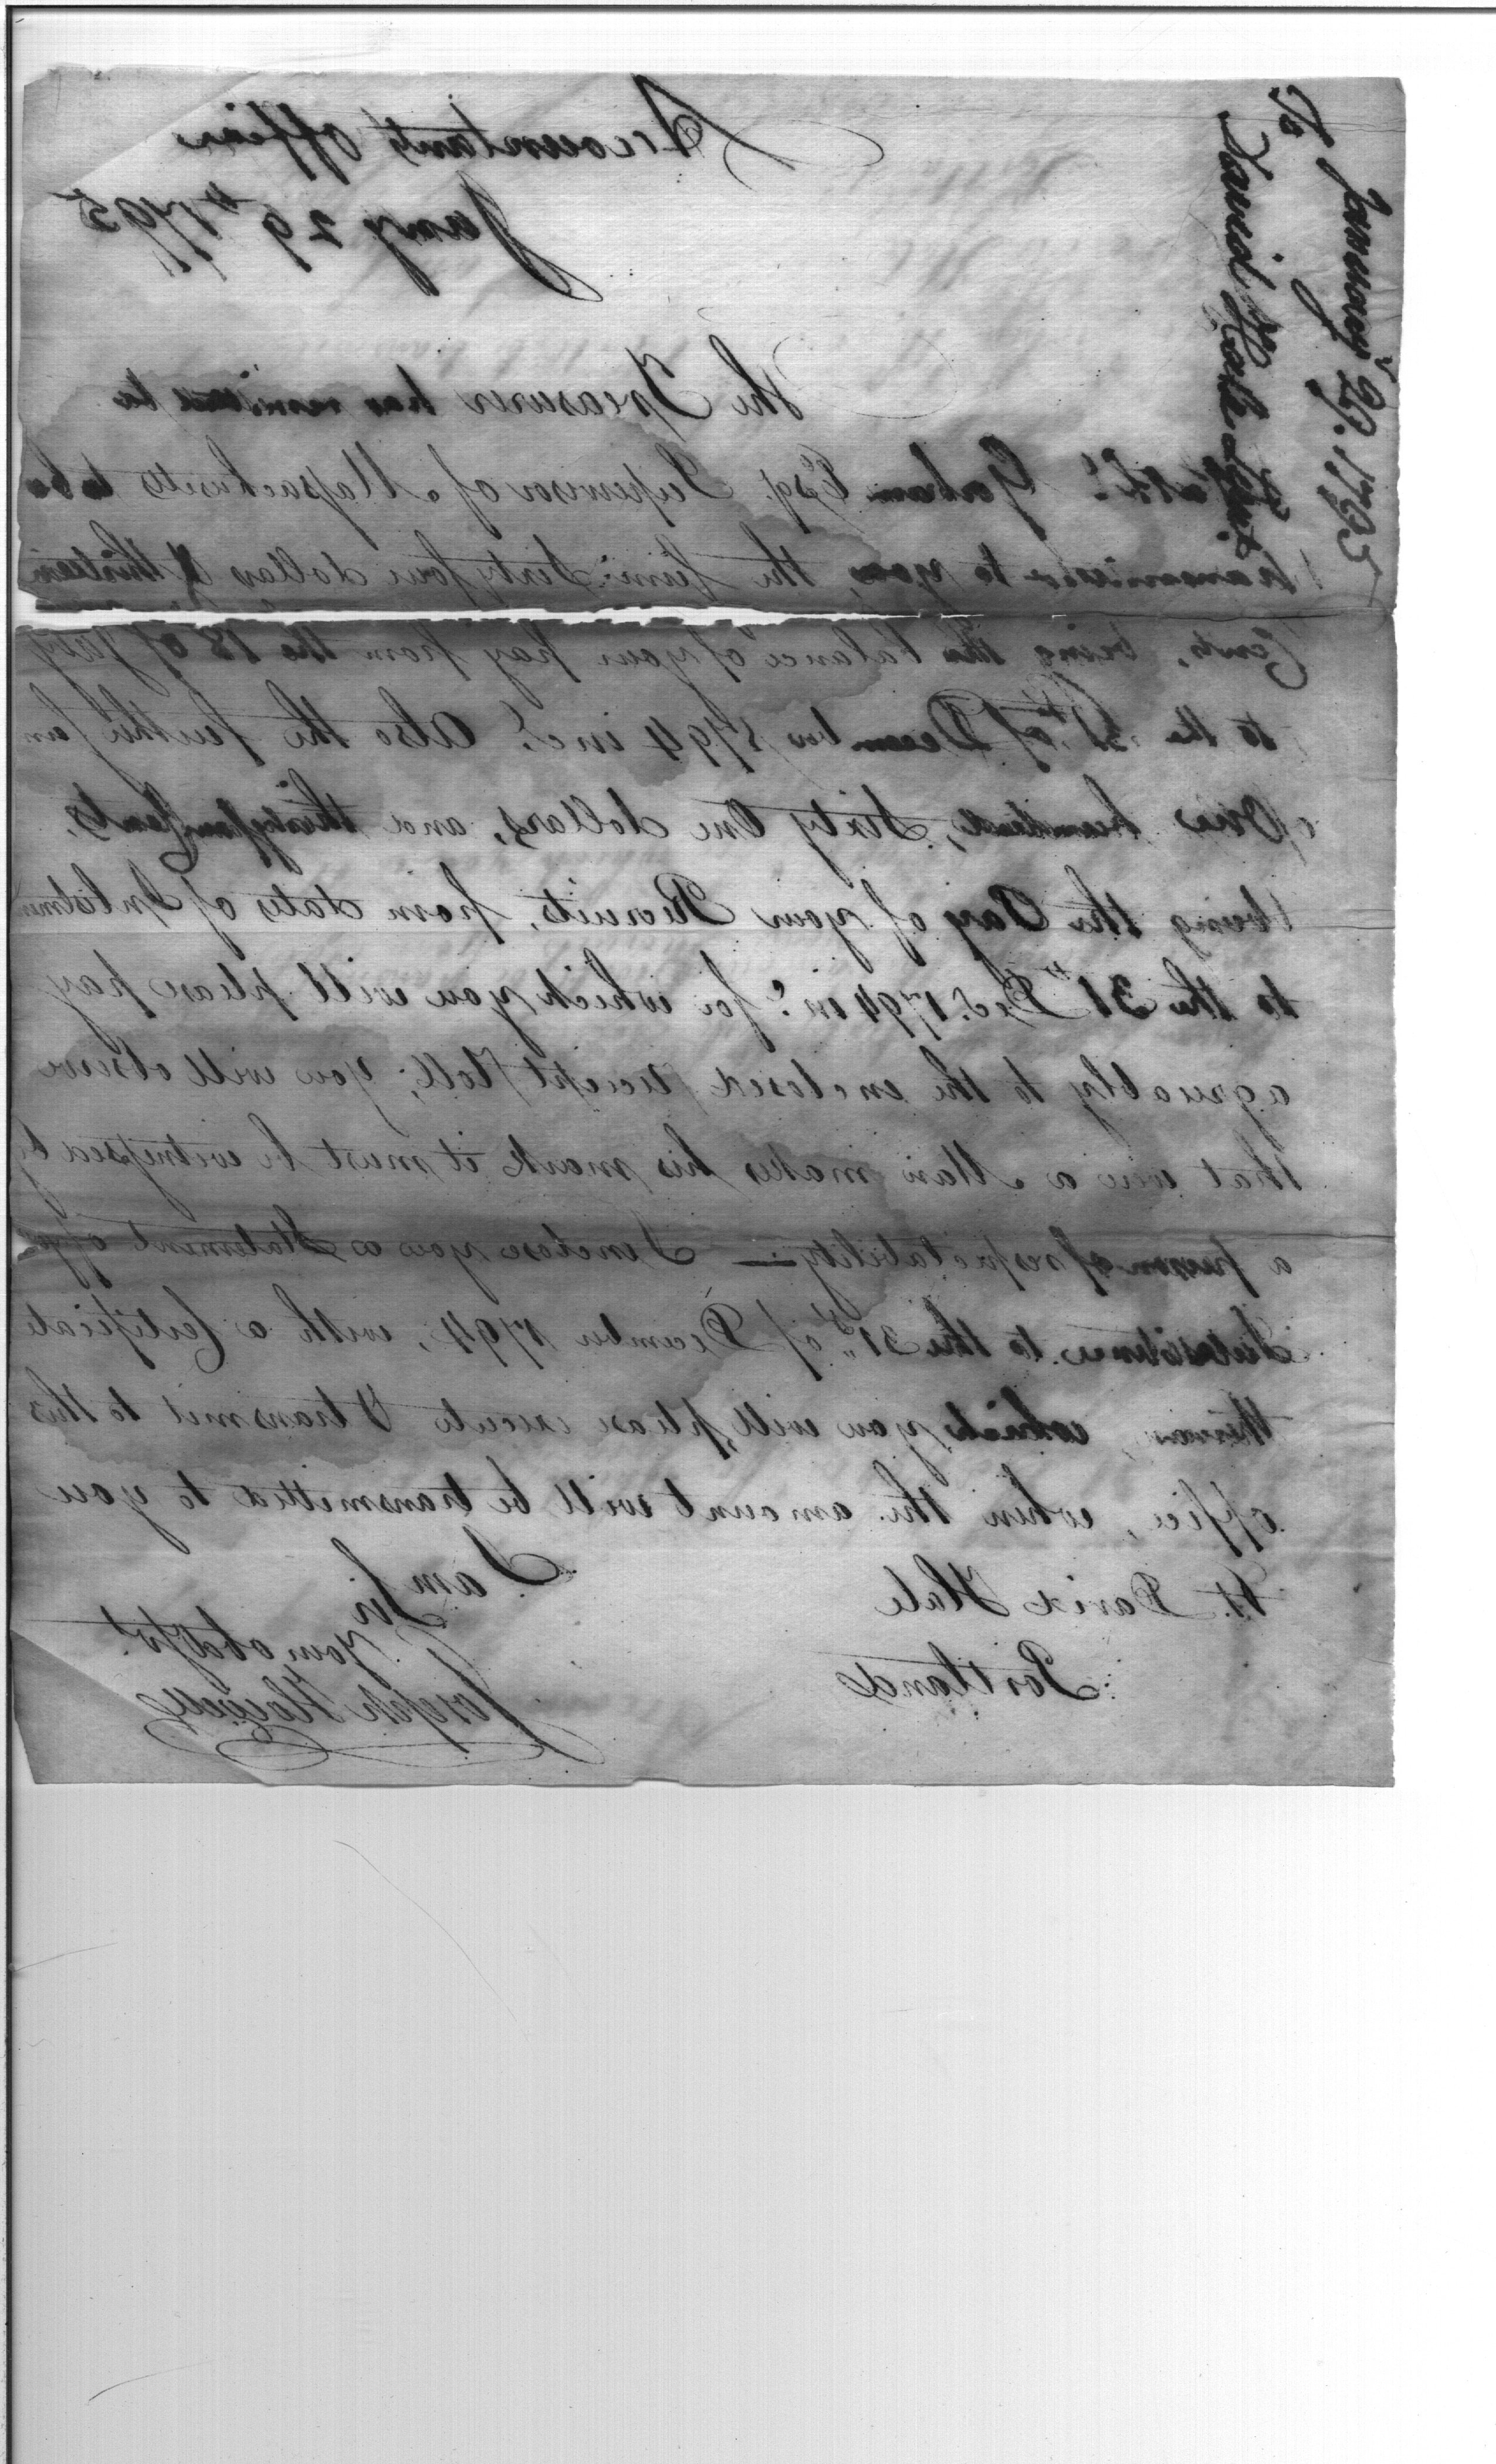 To
David Hale Lieut
January 29. 1795
Accountants Office
Jany 29th 1795
the Treasurer has remitted to
Nathl. Gorham Esqr. Supervisor of Massachusetts to be
transmitted to you, the sum: Sixty four dollars & thirteen
Cents, being the balance of your pay from the 18 of July
to the 31st. of December 1794 incl. Also the further sum
of One hundred, Sixty One dollars, and thirty four Cents,
being the Pay of your Recruits, from dates of Inlistment
to the 31st Decr. 1794 inc. for which you will please pay
agreeably to the enclosed receipt Roll; you will observe
that were a Man makes his mark it must be witnessed by
a person of respectability — I inclose you a Statement of yr
Subsistence to the 31st. of December 1794, with a Certificate
thereon, which you will please execute & transmit to this
office, when the amount will be transmitted to you
I am Sir
Your obedt Srt.
Joseph Howell
Lt. David Hale
Portland